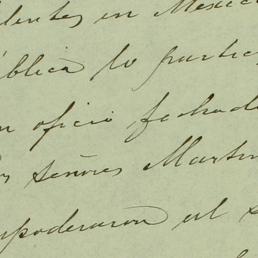 lentes en Mexico
ública lo partic
n oficio fechado
s señores Martin
apoderaron el s